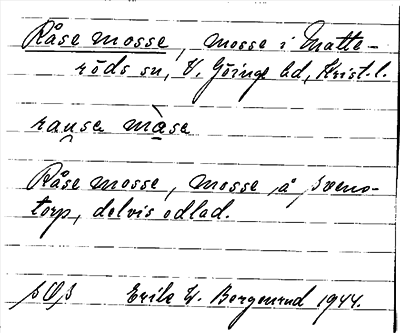 Råse mosse, mosse i Matte-
röds sn, V. Göinge hd, Krist. l.
rau̯sa màsa
Råse mosse, mosse å Svens-
torp, delvis odlad.
Erik W. Bergenrud 1944.